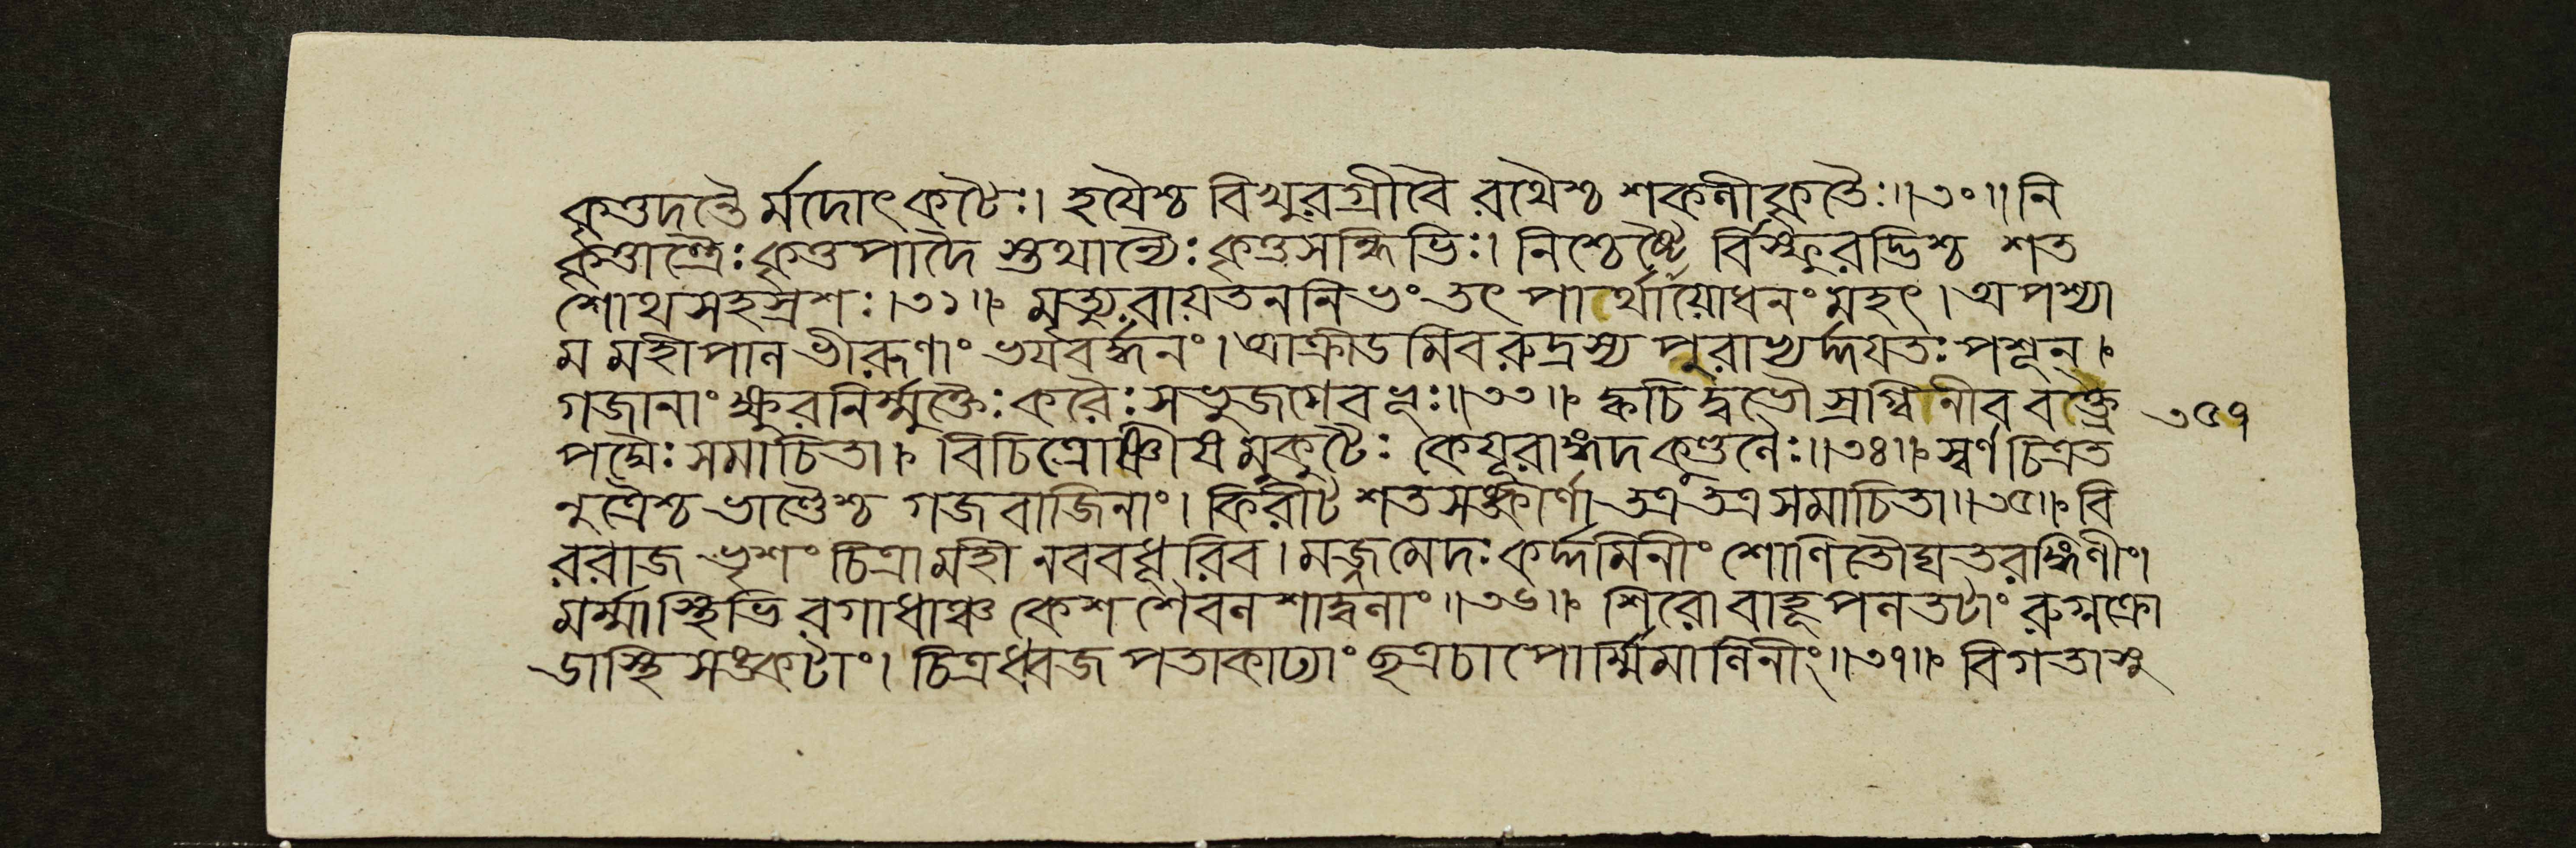 কৃত্তদন্তৈ র্মদোৎকটৈঃ। হয়ৈশ্চ বিখুরগ্রীবৈ রথৈশ্চ শকলীকৃতৈঃ॥৩০॥ নি
কৃত্তান্ত্রৈঃ কৃত্তপাদৈ স্তথান্যৈঃ কৃত্তসন্ধিভিঃ। নিশ্চেষ্টৈ র্বিস্ফুরদ্ভিশ্চ শত
শোথসহস্রশঃ।৩১॥ মৃত্যুরায়তননিভং তৎ পার্থায়োধনং মহৎ। অপশ্যা
ম মহীপাল ভীরূণাং ভয়বর্দ্ধনং। আক্রীডমিবরুদ্রস্য পুরাভ্যর্দ্দয়তঃ পশূন্।
গজানাং ক্ষুরনির্ম্মুক্তৈঃ করৈঃ সভুজগেবভূঃ॥৩৩॥ ক্বচিদ্বভৌ স্রগ্বিনীব বক্ত্র ৩৫৭
পদ্মৈঃ সমাচিতা। বিচিত্রোষ্ণীষ মুকুটৈঃ কেয়ূরাঙ্গদ কুণ্ডলৈঃ॥৩৪॥ স্বর্ণ চিত্রত
নুত্রৈশ্চ ভাণ্ডৈশ্চ গজবাজিনাং। কিরীট শতসঙ্কীর্ণা তত্র তত্র সমাচিতা॥৩৫॥ বি
ররাজ ভৃশং চিত্রা মহী নববধূরিব। মজ্জমেদঃ কর্দ্দমিনীং শোণিতৌঘতরঙ্গিণীং।
মর্ম্মাস্থিভি রগাধাঞ্চ কেশ শৈবল শাদ্বলাং॥৩৬॥ শিরোবাহূপলতটাং রুগ্নক্রো
ডাস্থি সঙ্কটাং। চিত্রধ্বজ পতাকাঢ্যাং ছত্রচাপোর্ম্মিমালিনীং॥৩৭॥ বিগতাসু